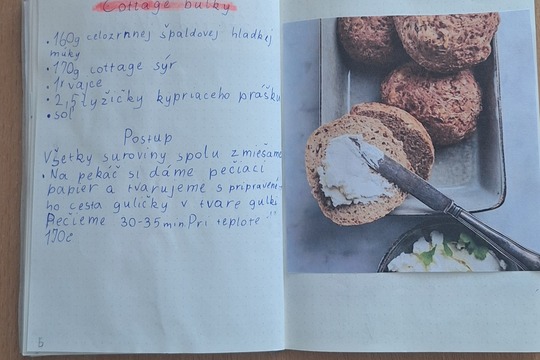 Cottage bulky
• 160g celozrnnej špaldovej hladkej
múky
• 170g cottage sýr
• 1 vajce
• 2,5 lyžičky kypriaceho prášku
• soľ
Postup
Všetky suroviny spolu zmiešame
• Na pekáč si dáme pečiaci
papier a tvarujeme s pripravené-
ho cesta guličky v tvare gulki
Pečieme 30-35min Pri teplote
170c
5